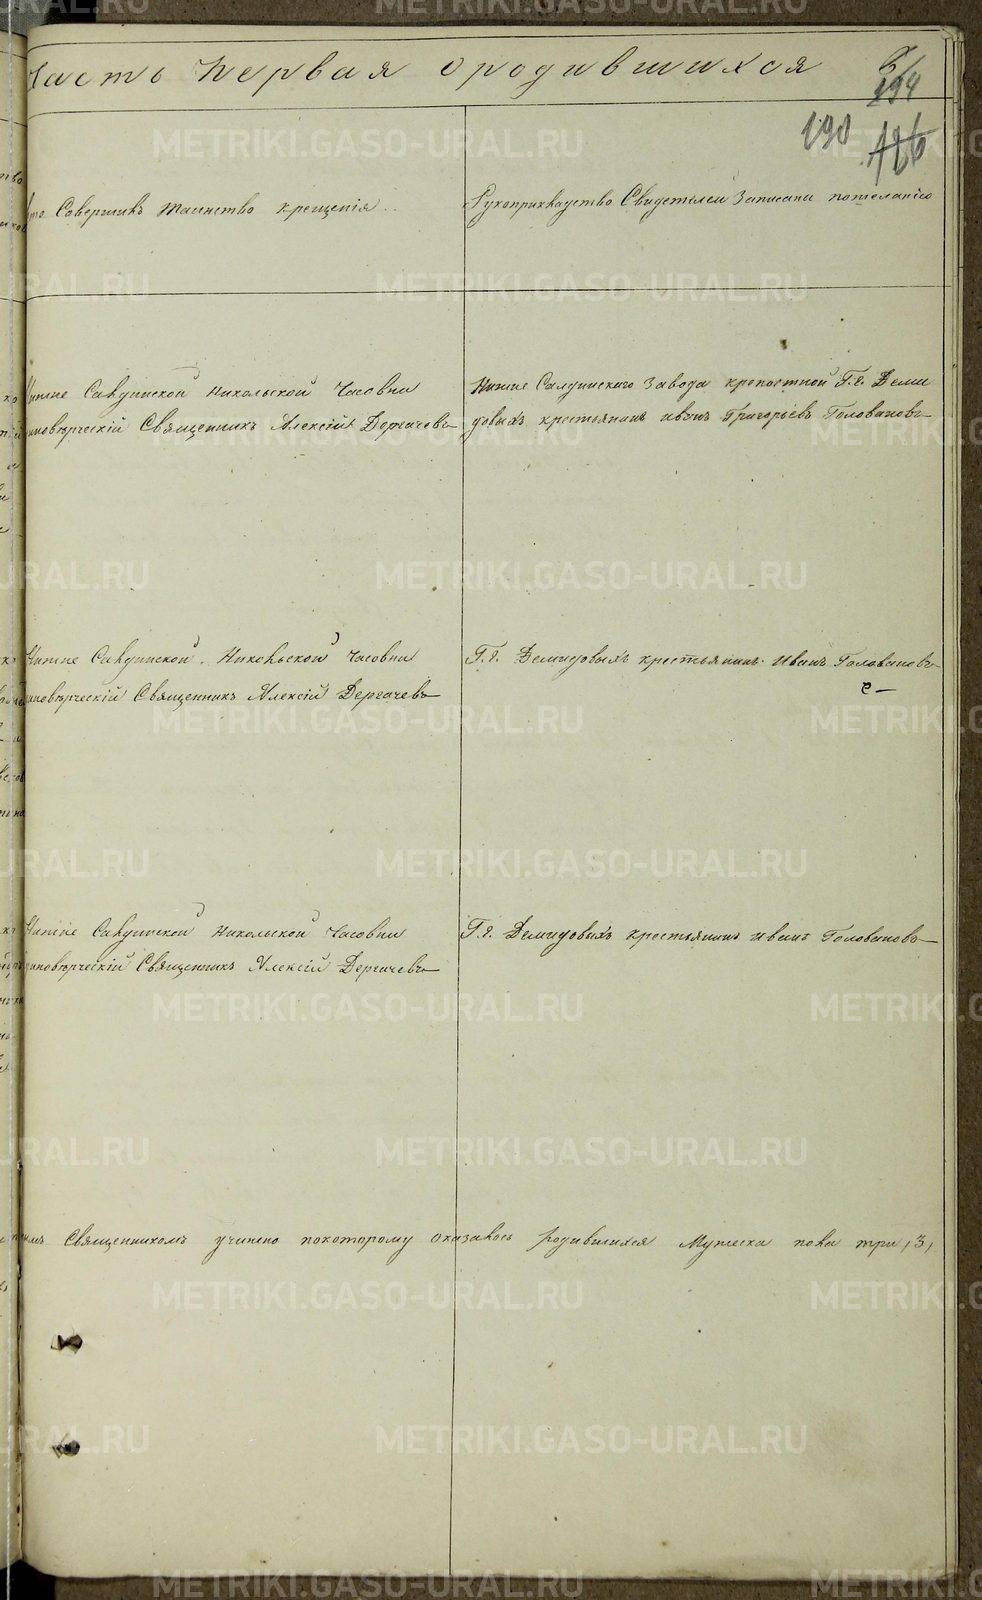 Часть Первая ородившихся
194
190 126
Кто Совершилъ таинство крещенія
Рукоприкладство Свидетелей Записали пожеланію
Нижне Салдинской Никольской Часовни
единоверческій Священникъ Алексій Дергачевъ
Нижне Салдинскаго Завода крепостной Г.г. Деми
довыхъ крестьянинъ иванъ Григорьевъ Головановъ
Нижне Салдинской Никольской Часовни
единоверческій Священникъ Алексій Дергачевъ
Г.г. Демидовыхъ крестьянинъ Иванъ Головановъ
Нижне Салдинской Никольской Часовни
единоверческій Священникъ Алексій Дергачевъ
Г.г. Демидовыхъ крестьянинъ иванъ Головановъ
Священникомъ учинено покоторому оказалось родившихся Мужеска пола три, 3,
METRIKI.GASO-URAL.RU